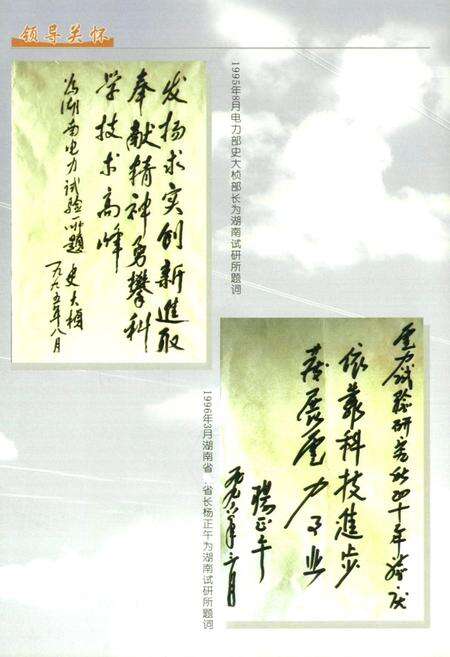 领导关怀
发扬求实创新進取
奉献精神勇攀科
学技术高峰
为湖南电力试验所题
史大桢
一九九五年八月
1995年8月电力部史大桢部长为湖南试研所题词
电力试验研究所四十年庆
依靠科技進步
發展电力事业
杨正午
一九九六年三月
1996年3月湖南省省长杨正午为湖南试研所题词